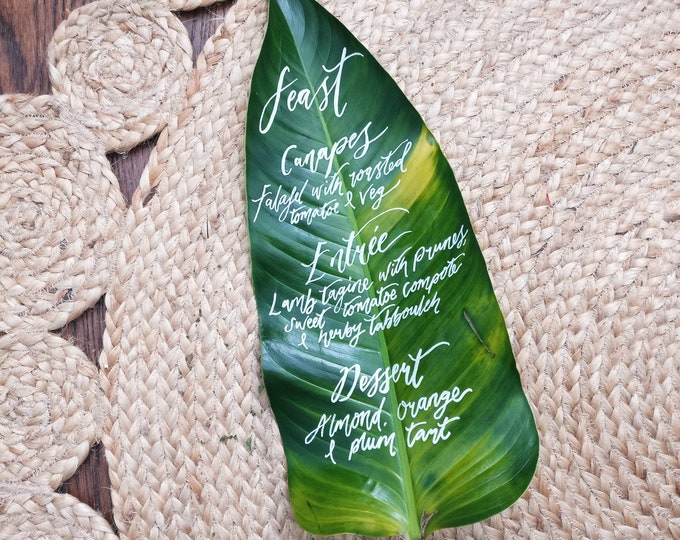 Feast
Canapes
Falafel with roasted
tomatoe & veg
Entrée
Lamb tagine with prunes,
sweet tomatoe compote
& herby tabbouleh
Dessert
Almond, orange
& plum tart